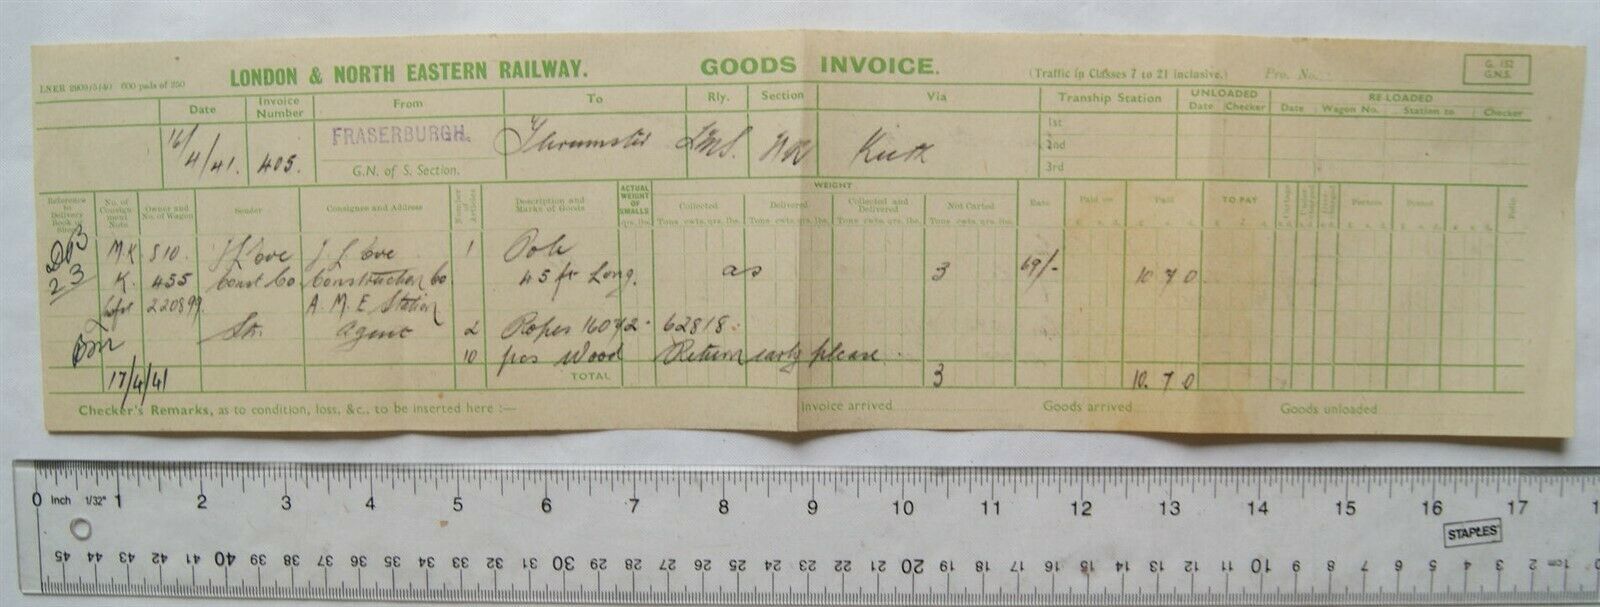 LONDON & NORTH EASTERN RAILWAY. GOODS INVOICE. (Traffic in Classes 7 to 21 inclusive.) Pro. No. G. 152
G.N.S.
600 pads of 250
Date Invoice Number From To Rly. Section Via Tranship Station UNLOADED Date Checker RE-LOADED Date Wagon No. Station to Checker
16/4/41. 405. FRASERBURGH. Thrumster LMS. 1st
2nd
G.N. of S. Section. 3rd
Reference to Delivery Book or Sheet No. of Consignment Note Owner and No. of Wagon Sender Consignee and Address Number of Articles Description and Marks of Goods ACTUAL WEIGHT OF SMALLS qrs. lbs. WEIGHT Collected Tons cwts. qrs. lbs. Delivered Tons cwts. qrs. lbs. Collected and Delivered Tons cwts. qrs. lbs. Not Carted Tons cwts. qrs. lbs. Rate Paid on Paid TO PAY Folio
MK 510. 1 Pole
23 K. 455 Const Co Construction Co. 45 ft Long. as 3 69/- 10 7 0
220899 A.M.E Station
Str. agent 2 Ropes 16042 - 62818.
10 pcs Wood Return early please.
17/4/41 TOTAL 3 10. 7 0
Checker's Remarks, as to condition, loss, &c., to be inserted here :— Invoice arrived Goods arrived Goods unloaded
0 Inch 1/32" 1 2 3 4 5 6 7 8 9 10 11 12 13 14 15 16 17
STAPLES
45 44 43 42 41 40 39 38 37 36 35 34 33 32 31 30 29 28 27 26 25 24 23 22 21 20 19 18 17 16 15 14 13 12 11 10 9 8 7 6 5 4 3 2 1cm